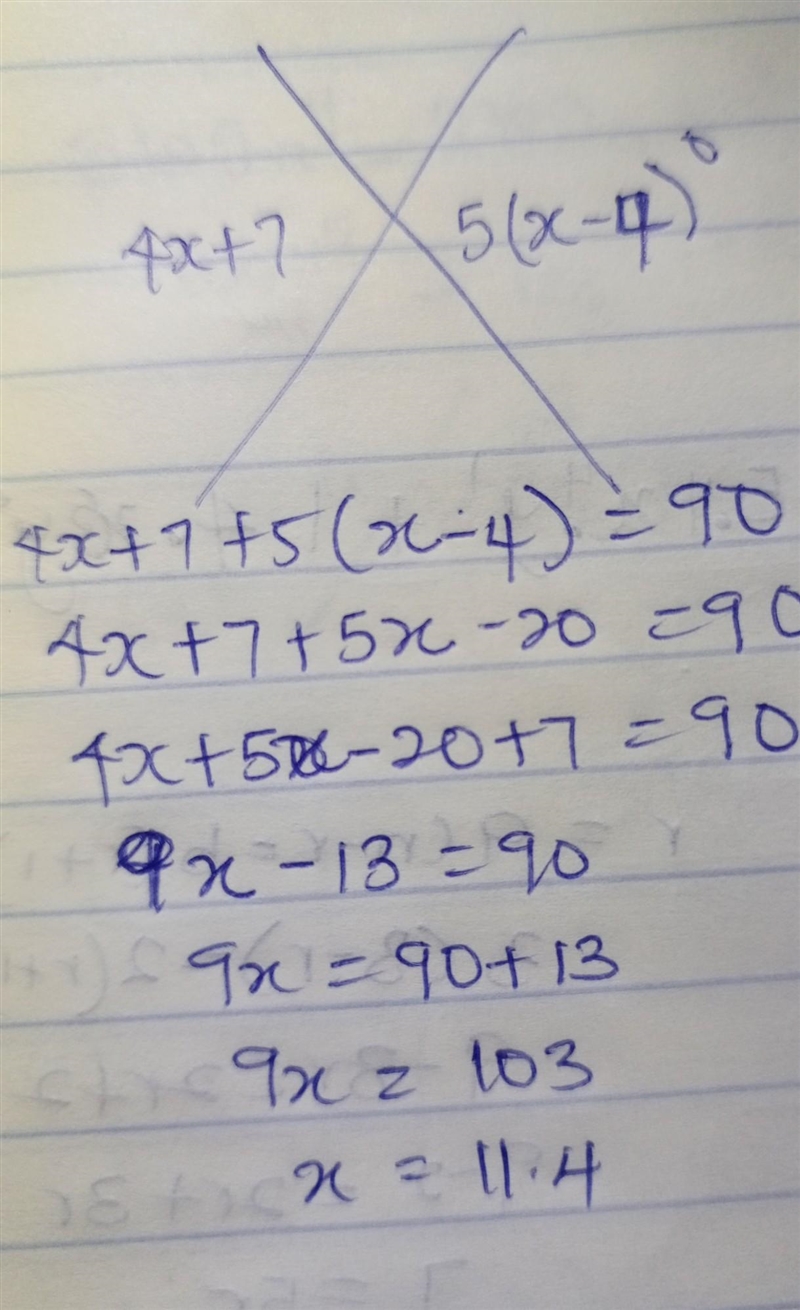 4x+7 5(x-4)°
4x+7+5(x-4)=90
4x+7+5x-20=90
4x+5x-20+7=90
9x-13=90
9x=90+13
9x=103
x=11.4